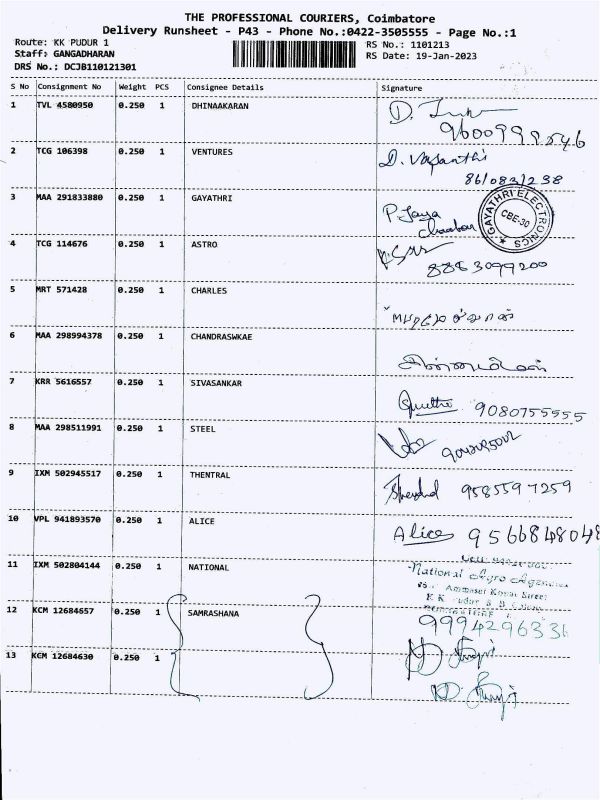 THE PROFESSIONAL COURIERS, Coimbatore
Delivery Runsheet - P43 - Phone No.:0422-3505555 - Page No.:1
Route: KK PUDUR 1
RS No.: 1101213
Staff: GANGADHARAN
RS Date: 19-Jan-2023
DRS No.: DCJB110121301
S No Consignment No Weight PCS Consignee Details Signature
1 TVL 4580950 0.250 1 DHINAAKARAN
2 TCG 106398 0.250 1 VENTURES D. Vasanthi
3 MAA 291833880 0.250 1 GAYATHRI P. Jaya
GAYATHRI ELECTRONICS CBE-30
4 TCG 114676 0.250 1 ASTRO
8883099200
5 MRT 571428 0.250 1 CHARLES
6 MAA 298994378 0.250 1 CHANDRASWKAE
7 KRR 5616557 0.250 1 SIVASANKAR
9080755555
8 MAA 298511991 0.250 1 STEEL
9 IXM 502945517 0.250 1 THENTRAL
9585597259
10 VPL 941893570 0.250 1 ALICE Alice 9566848048
11 IXM 502804144 0.250 1 NATIONAL
National Agro Agencies
12 KCM 12684657 0.250 1 SAMRASHANA
9994296336
13 KCM 12684630 0.250 1